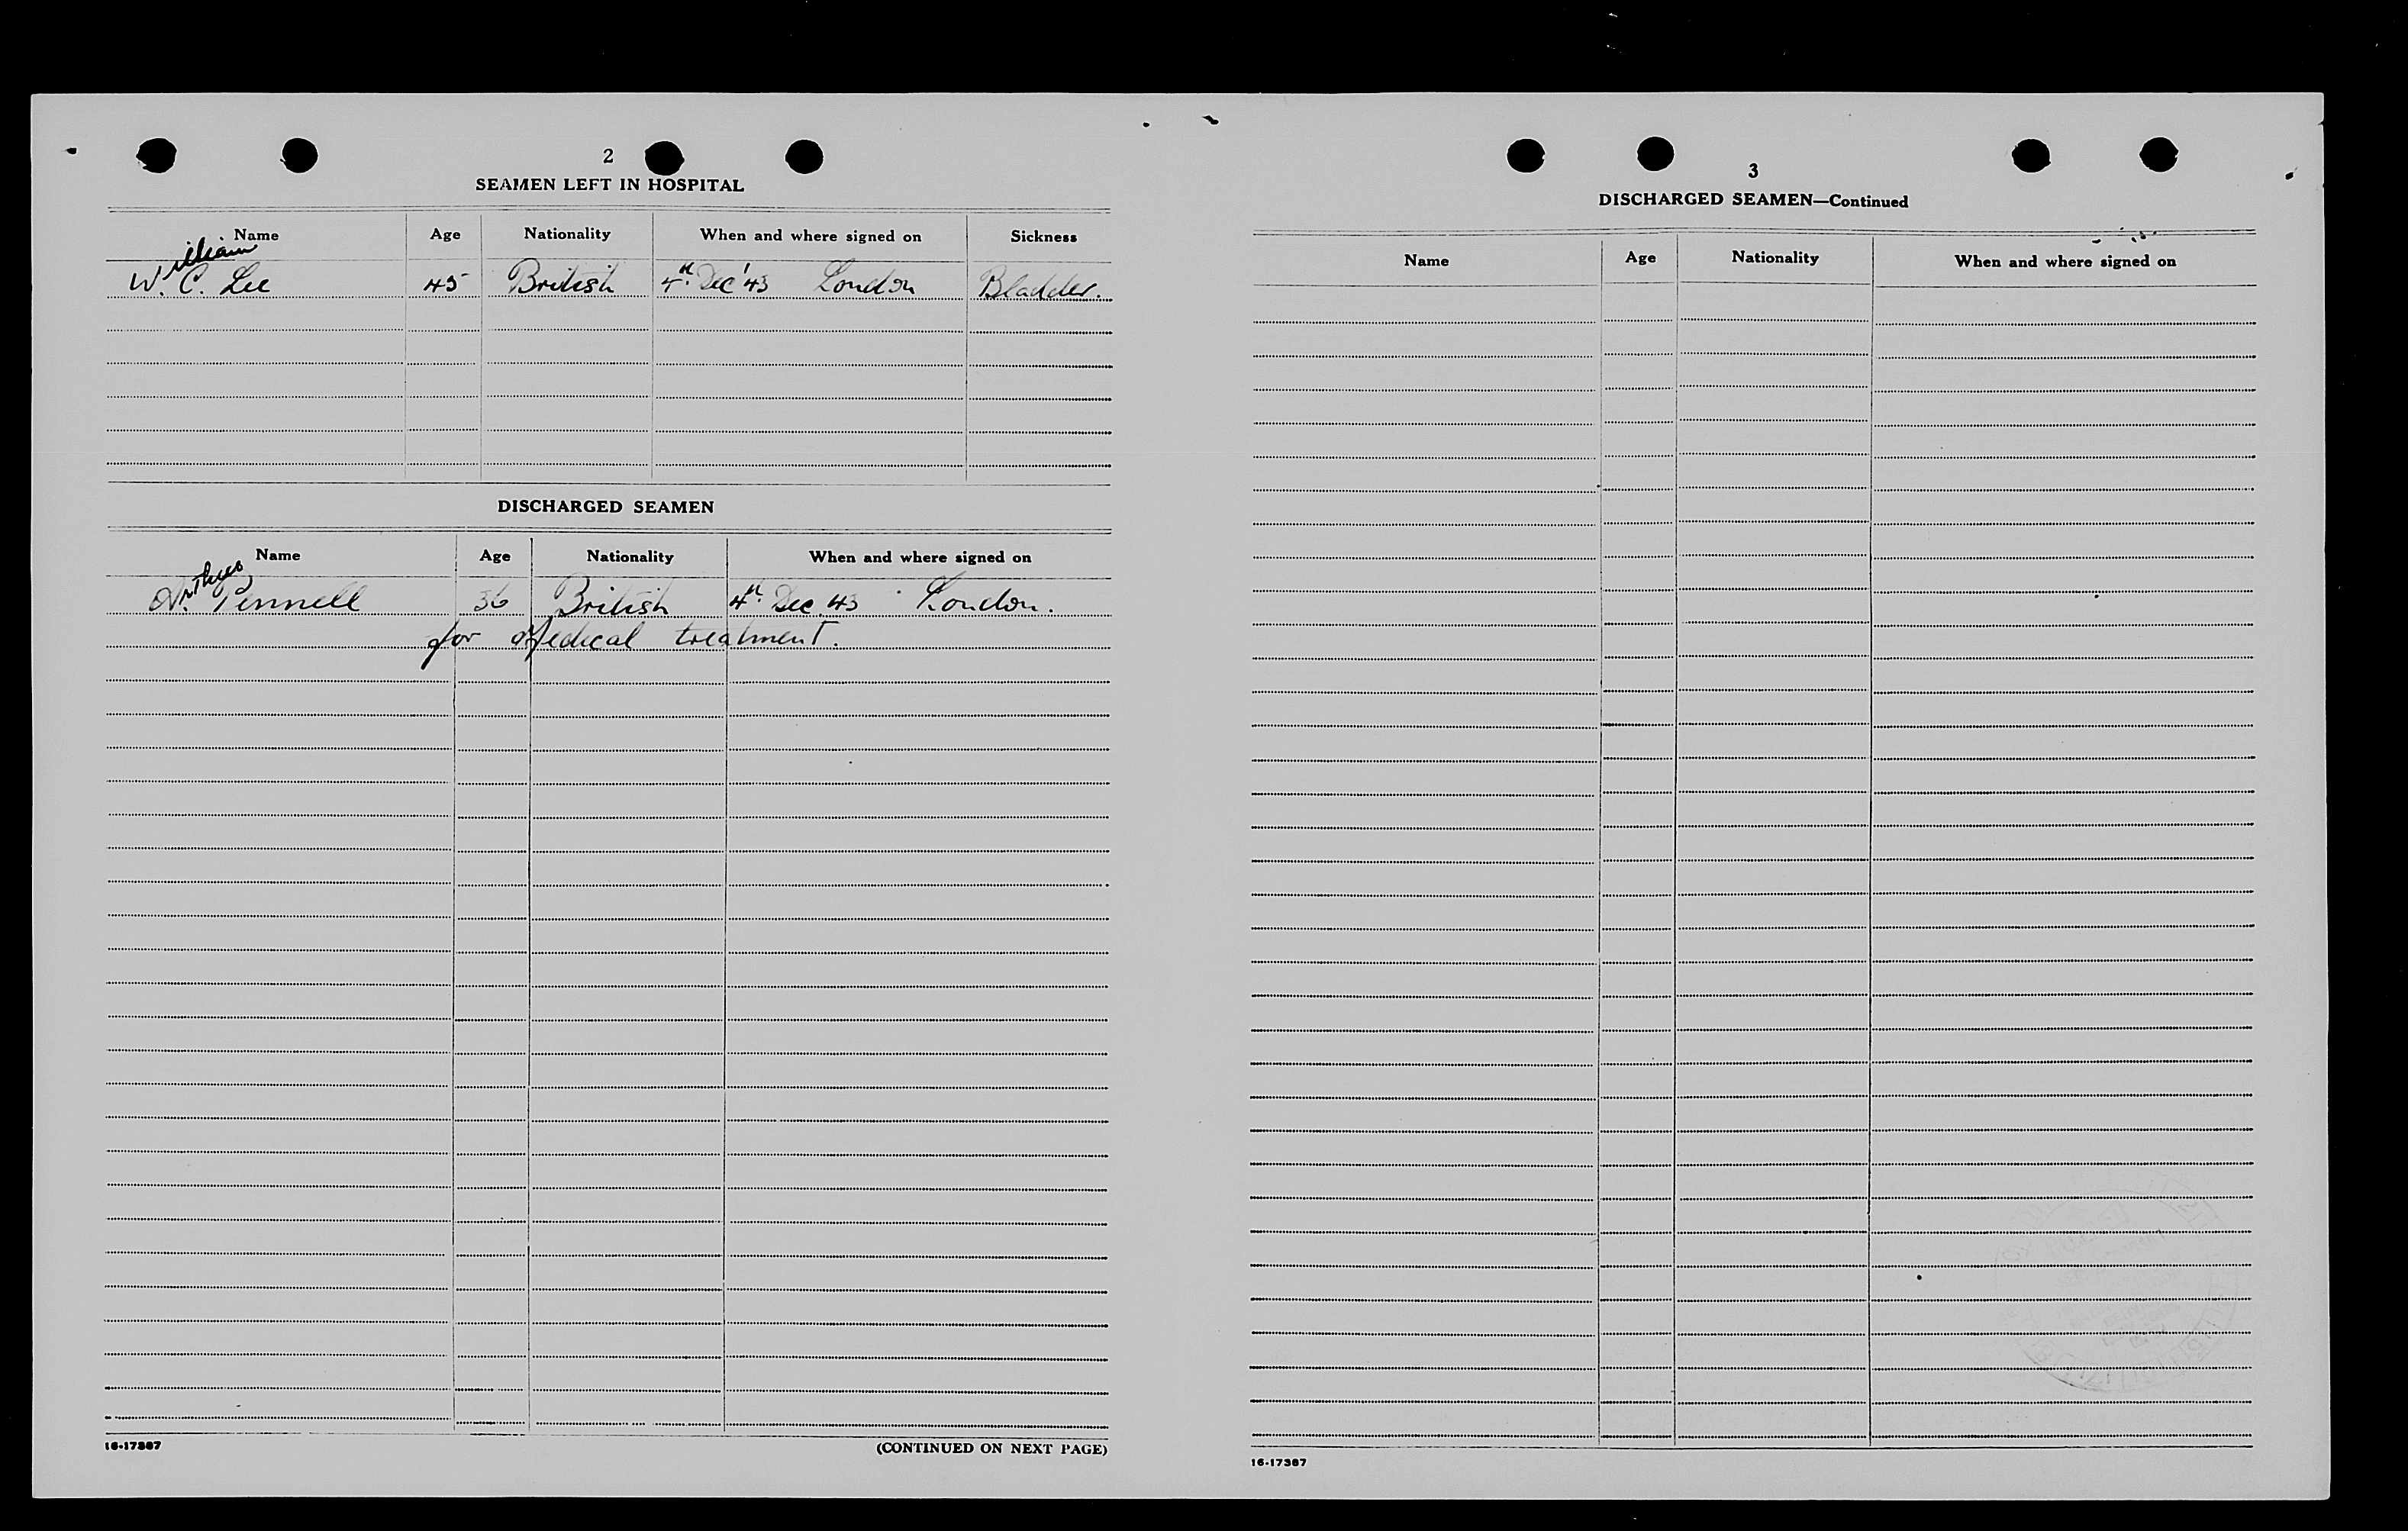 2
SEAMEN LEFT IN HOSPITAL
Name Age Nationality When and where signed on Sickness
William
W. C. Lee 45 British 4th Dec '43 London Bladder.
DISCHARGED SEAMEN
Name Age Nationality When and where signed on
Arthur
A. Pennell 36 British 4th Dec. 43 London.
for Medical treatment.
16-17387
(CONTINUED ON NEXT PAGE)
3
DISCHARGED SEAMEN—Continued
Name Age Nationality When and where signed on
16-17387